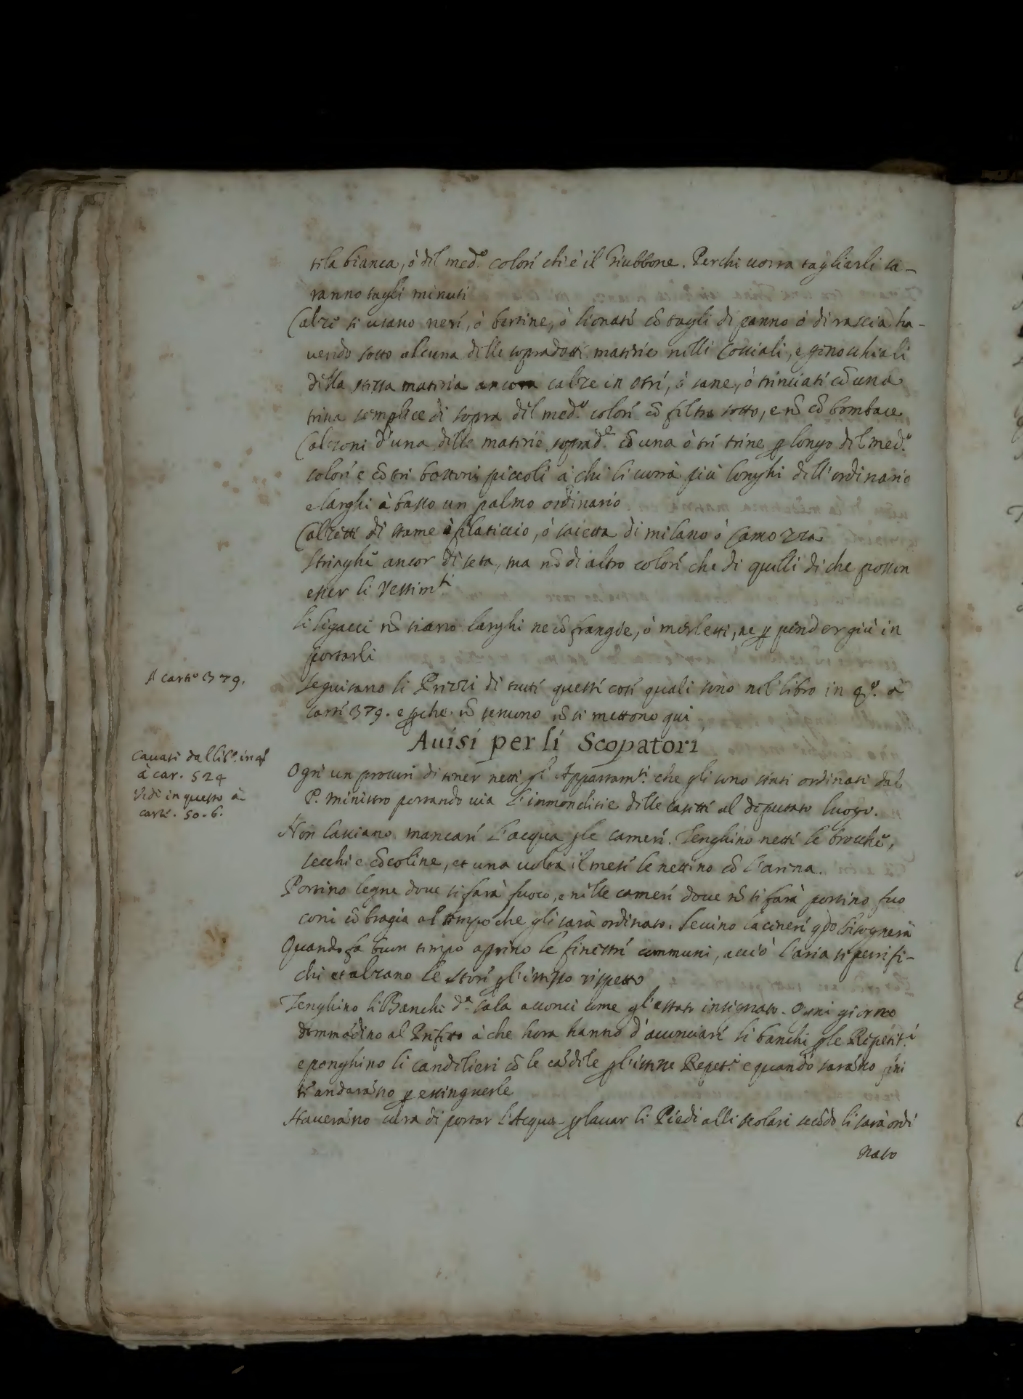 tela bianca, ò del med.º colore che è il Giubbone. Perche vorra tagliarli sa-
ranno tagli minuti
Calze si usano nere, ò bertine, ò lionate cõ tagli di panno ò di rascia ha-
vendo sotto alcuna delle sopradette materie nelli cosciali, e ginocchiali
della stessa materia ancora calze in otre, ò sane, ò trinciate cõ una
trina semplice di sopra del med.º colore cõ filtro sotto, e nõ cõ bombace
Calzoni d'una delle materie soprad.e cõ una ò tre trine p longo del med.º
colore e cõ tre bottoni piccoli à chi li vorrà più longhi dell'ordinario
e larghi à basso un palmo ordinario
Calzette di stame ò filaticcio, ò saietta di milano ò Camozza
Stringhe ancor di seta, ma nõ di altro colore che di quelli di che posson
esser li Vestim.ti
li ligacci nõ siano larghi ne cõ frangie, ò merletti, ne p pender giù in
portarli
A carte 379.
Seguitano li Prezzi di tutte queste cose quali sono nel libro in q.º à
carte 379. e pche nõ servono nõ si mettono qui
Avisi per li Scopatori
Cavati dal lib.º in qº
à car. 524
Vedi in questo à
carte. 50. 6.
Ogn' un procuri di tener netti gl' Appartam.ti che gli sono stati ordinati dal
P. Ministro portando via l'immonditie delle casette al deputato luogo.
Non lasciano mancare l'acqua p le camere. Tenghino nette le brocche,
secchi e cõcoline, et una volta il mese le nettino cõ l'arina.
Portino legne dove si farà fuoco, e nelle camere dove nõ si farà portino fuo
coni cõ bragia al tempo che gli sarà ordinato. Levino la cinere qdo bisognerà
Quando fà buon tempo aprino le finestre communi, acciò l'aria si purifi-
chi et alzano le store p l'istesso rispetto
Tenghino li Banchi d.a sala acconci come gl' è stato insegnato. Ogni giorno
dimmadino al Prefetto à che hora hanno d'acconciare li banchi p le Repetit.i
e ponghino li candilieri cõ le cãdele p l'istesse Repet.i e quando sarãno fini
te anderãno p estinguerle
Haverãno cura di portar l'Acqua p lavar li Piedi alli scolari secõdo li sarà ordi
nato